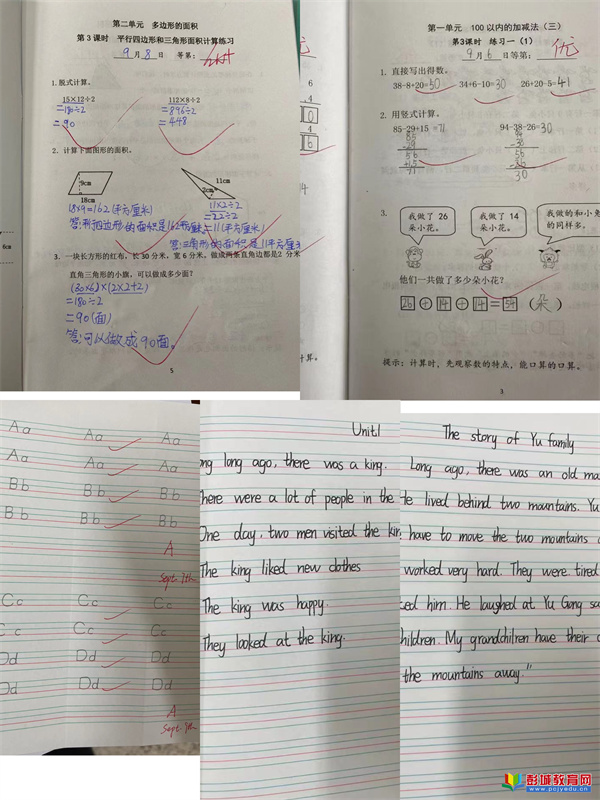 第二单元 多边形的面积
第3课时 平行四边形和三角形面积计算练习
9月8日 等第:
1.脱式计算。
15×12÷2 112×8÷2
=180÷2 =896÷2
=90 =448
2. 计算下面图形的面积。
9cm 11cm
2cm
18cm
18×9=162(平方厘米) 11×2÷2
=22÷2
=11(平方厘米)
答:三角形的面积是11平方厘米
3. 一块长方形的红布,长30分米,宽6分米。做成两条直角边都是2分米
直角三角形的小旗,可以做成多少面?
(30×6)×(2×2÷2)
=180÷2
=90(面)
答:可以做成90面。
5
6cm
6
4
0
4
6
计算。
第一单元 100以内的加减法(三)
第3课时 练习一(1)
9月6日 等第: 优
1. 直接写出得数。
38-8+20=50 34+6-10=30 26+20-5=41
2. 用竖式计算。
85-29+15=71 94-38-26=30
85
-29
56
+15
71
-38
56
-26
30
3.
我做了26朵小花。
我做了14朵小花。
我做的和小兔的同样多。
他们一共做了多少朵小花?
26+14+14=54(朵)
提示:计算时,先观察数的特点,能口算的口算。
3
Aa Aa Aa
Aa Aa Aa
Bb Bb Bb
Bb Bb Bb
A
Sept. 7th
Cc Cc Cc
Cc Cc Cc
Dd Dd Dd
Dd Dd Dd
A
Sept. 9th
Unit1
ong long ago, there was a king.
There were a lot of people in the
One day, two men visited the kin
The king liked new clothes
The king was happy.
They looked at the king.
The story of Yu family
Long ago, there was an old ma
He lived behind two mountains. Yu
have to move the two mountains
worked very hard. They were tired
ced him. He laughed at Yu Gong sa
children. My grandchilren have their
the mountains away."
彭城教育网
www.pcjyedu.cn